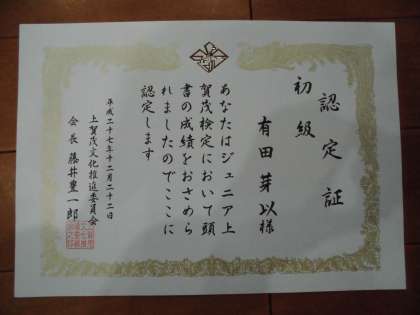 認定証
初級
有田芽以様
あなたはジュニア上
賀茂検定において頭
書の成績をおさめら
れましたのでここに
認定します
平成二十七年十二月二十二日
上賀茂文化推進委員会
会長 藤井豊一郎